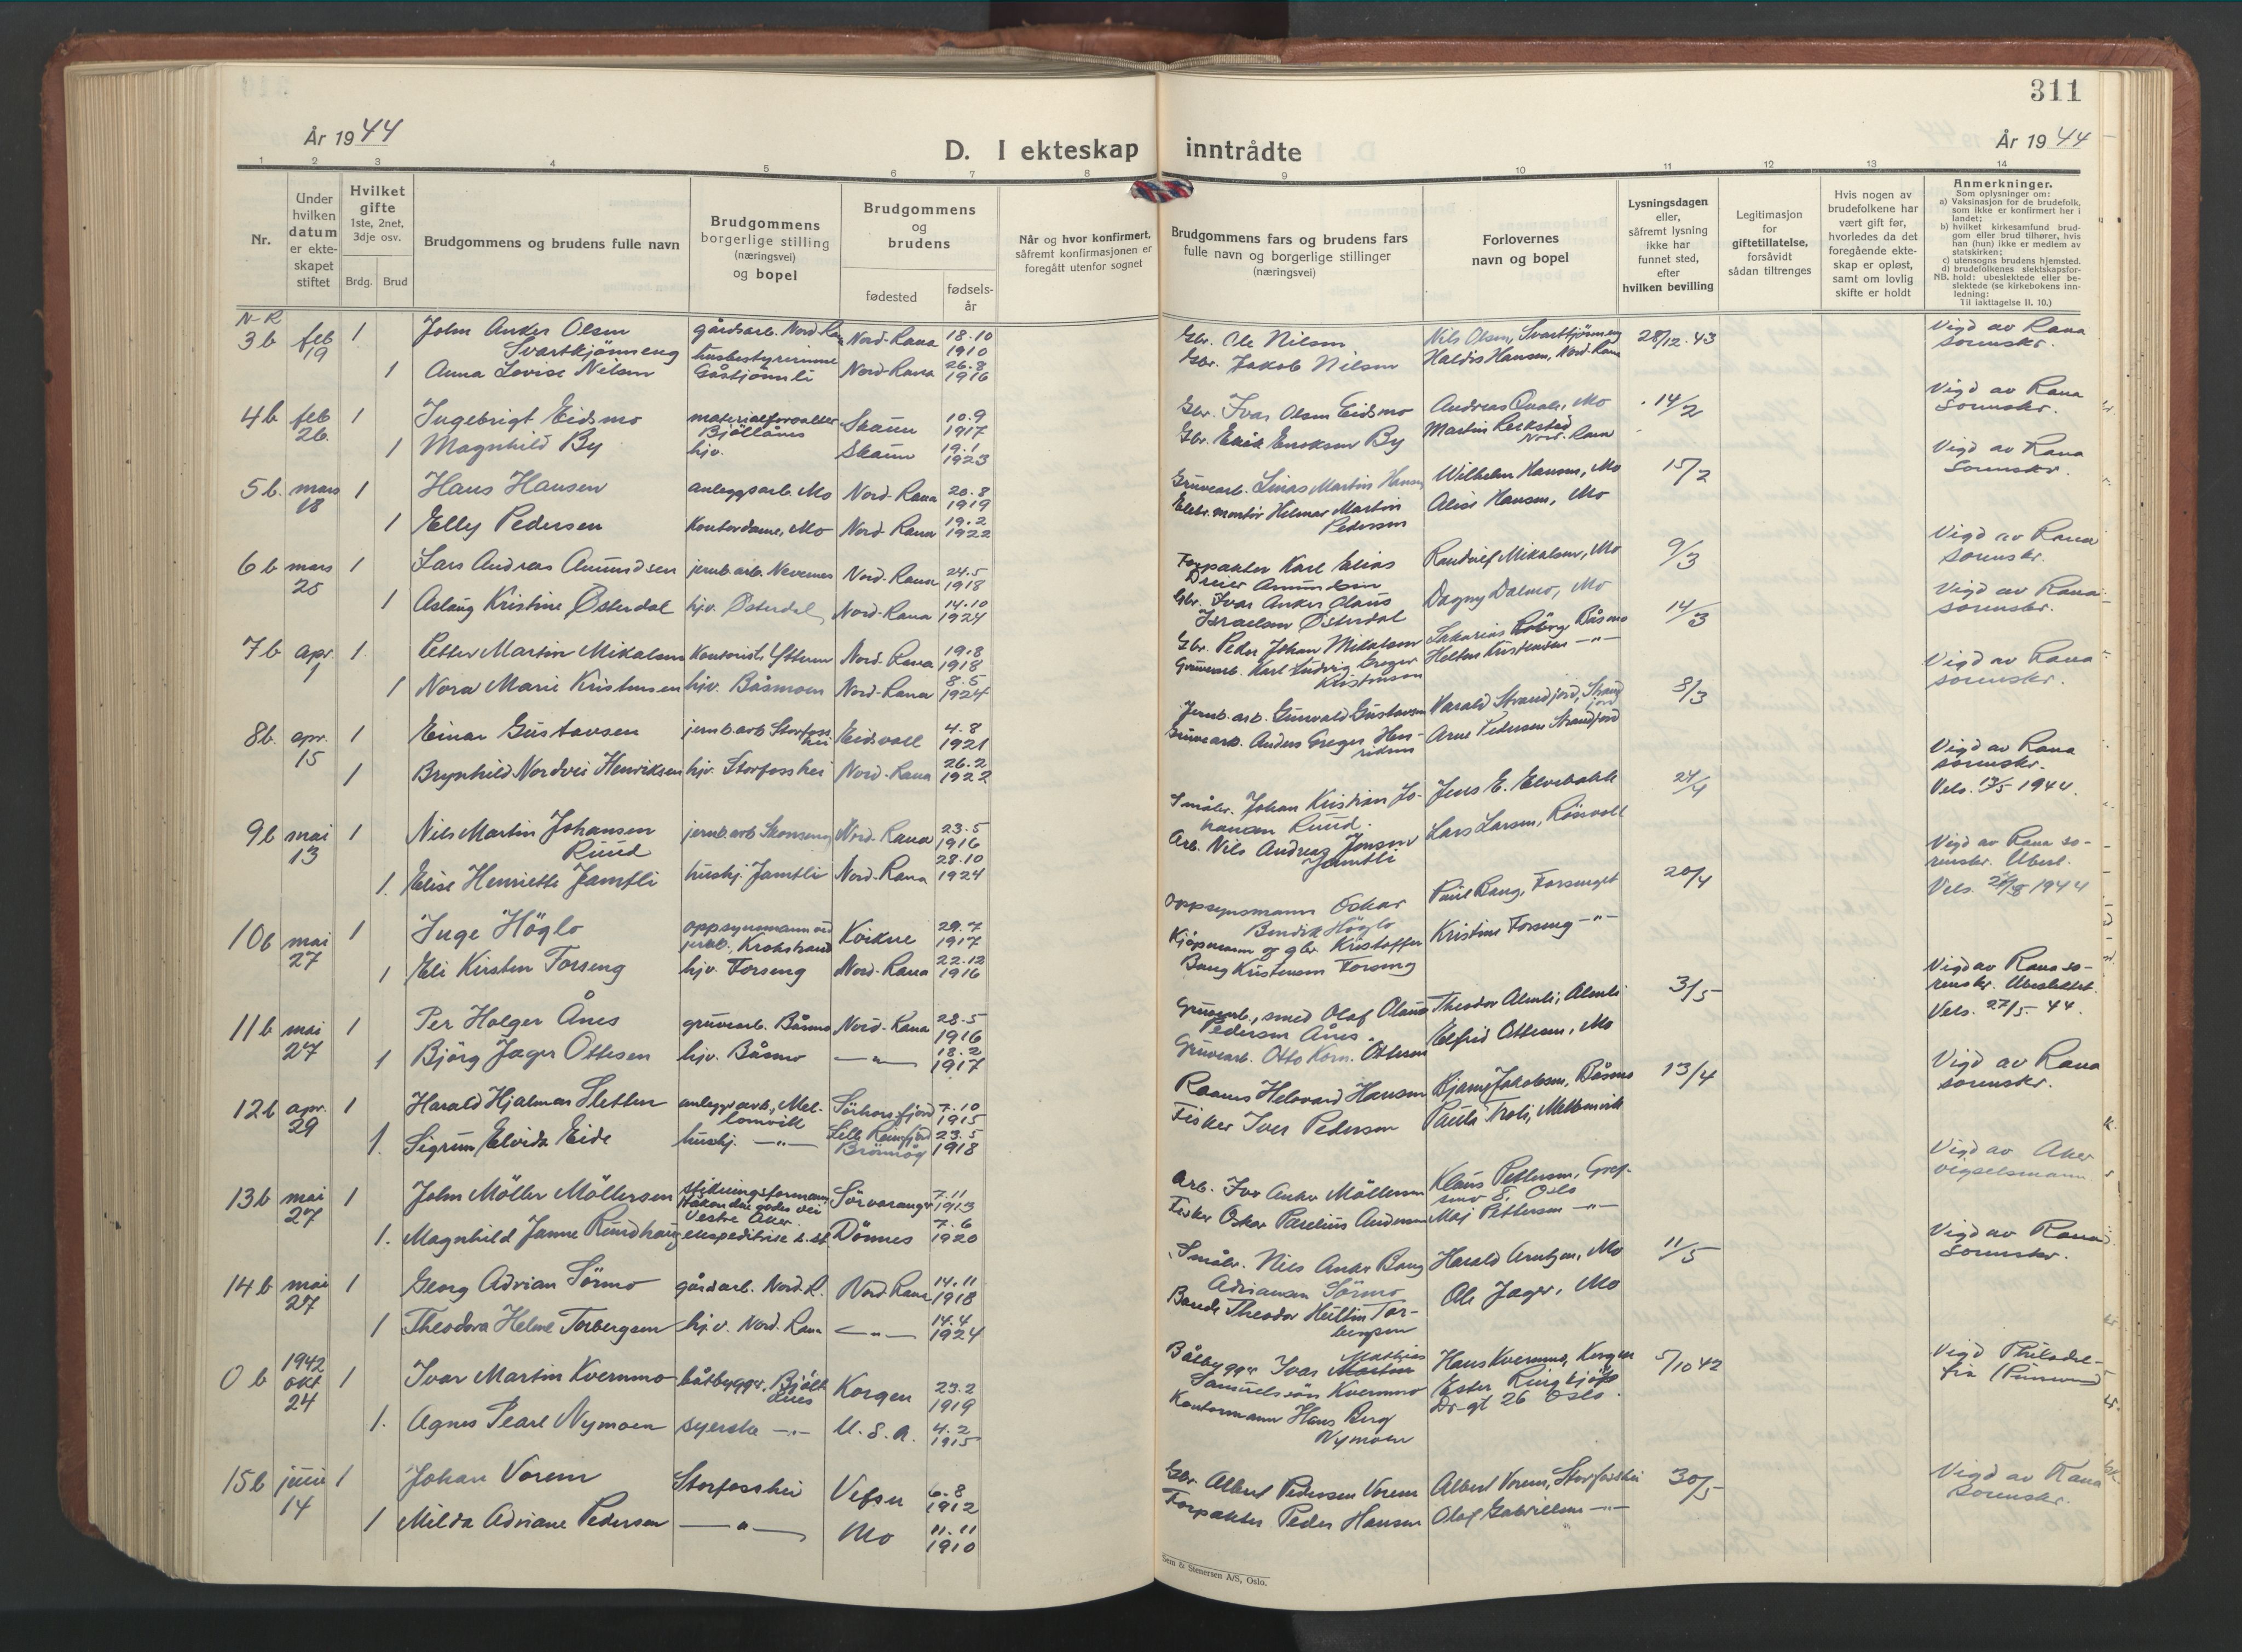 311
År 1944
D. I ekteskap inntrådte
År 1944
1 2 3 4 5 6 7 8 9 10 11 12 13 14
Nr.
Under
hvilken
datum
er ekte-
skapet
stiftet
Hvilket
gifte
1ste, 2net,
3dje osv.
Brdg. Brud
Brudgommens og brudens fulle navn
Brudgommens
borgerlige stilling
(næringsvei)
og bopel
Brudgommens
og
brudens
fødested
fødsels-
år
Når og hvor konfirmert,
såfremt konfirmasjonen er
foregått utenfor sognet
Brudgommens fars og brudens fars
fulle navn og borgerlige stillinger
(næringsvei)
Forlovernes
navn og bopel
Lysningsdagen
eller,
såfremt lysning
ikke har
funnet sted,
efter
hvilken bevilling
Legitimasjon
for
giftetillatelse,
forsåvidt
sådan tiltrenges
Hvis nogen av
brudefolkene har
vært gift før,
hvorledes da det
foregående ekte-
skap er opløst,
samt om lovlig
skifte er holdt
Anmerkninger.
Som oplysninger om:
a) Vaksinasjon for de brudefolk,
som ikke er konfirmert her i
landet;
b) hvilket kirkesamfund brud-
gom eller brud tilhører, hvis
han (hun) ikke er medlem av
statskirken;
c) utensogns brudens hjemsted.
d) brudefolkenes slektskapsfor-
NB. hold: ubeslektede eller be-
slektede (se kirkebokens inn-
ledning:
Til iakttagelse II. 10.)
N-R
3b feb 19 1 John Anker Olsen Svartkjønneng gårdsarb. Nord-Rana Nord-Rana 18.10 1910 Gbr. Ole Nilsen Nils Olsen, Svarttjønneng 28/12.43 Vigd av Rana sorenskr.
1 Anna Lovise Nilsen husbestyrerinne Gåstjønnli Nord-Rana 26.8 1916 Gbr. Jakob Nilsen Haldis Hansen, Nord-Rana
4b feb 26. 1 Ingebrigt Eidsmo materialforvalter Bjøllånes Skaun 10.9 1917 Gbr. Ivar Olsen Eidsmo Andreas Qvale, Mo 14/2 Vigd av Rana Sorenskr.
1 Magnhild By hjv. Skaun 19.1 1923 Gbr. Erik Eriksen By Martin Nord-Rana
5b. mars 18 1 Hans Hansen anleggsarb. Mo Nord-Rana 20.8 1919 Gruvearb. Linas Martin Hansen Wilhelm Hansen, Mo 15/2 Vigd av Rana Sorenskr.
1 Elly Pedersen Kontordame, Mo Nord-Rana 19.2 1922 Elektr.montør Hilmar Martin Pedersen Alise Hansen, Mo
6b mars 25 1 Lars Andreas Amundsen jernb.arb. Nevernes Nord-Rana 24.5 1918 Forpakter Karl Elias Dreier Amundsen Randulf Mikalsen, Mo 9/3 Vigd av Rana sorenskr.
1 Aslaug Kristine Østerdal hjv. Østerdal Nord-Rana 14.10 1924 Gbr. Ivar Anker Olaus Israelsen Østerdal Dagny Dalmo, Mo
7b apr. 1 1. Petter Martin Mikalsen Kontorist, Ytteren Nord-Rana 19.8 1918 Gbr. Peder Johan Mikalsen Sakarias Båsmo 14/3 Vigd av Rana sorenskr.
1 Nora Marie Kristensen hjv. Båsmoen Nord-Rana 8.5 1924 Gruvearb. Karl Ludvig Greger Kristensen Kristensen -"-
8b. apr. 15 1 Einar Gustavsen jernb.arb Storfosshei Eidsvoll 4.8 1921 Jernb.arb. Gunvald Gustavsen Harald Strandjord, Strandjord 3/3 Vigd av Rana sorenskr.
1 Brynhild Nordvei Henriksen hjv. Storfosshei Nord-Rana 26.2 1922 Gruvearb. Anders Greger Henriksen Arne Pedersen Strandjord
9b mai 13 1 Nils Martin Johansen Ruud jernb.arb Skonseng Nord-Rana 23.5 1916 Småbr. Johan Kristian Johansen Ruud. Jens E. Elvebakk 24/4 Vigd av Rana sorenskr. Vels. 13/5 1944.
1. Elise Henriette Jamtli hushj. Jamtli Nord-Rana 28.10 1924 Arb. Nils Andreas Jonsen Jamtli Lars Larsen, Røsvoll
10b mai 27 1 Inge Höglo oppsynsmann ved jernb. Krokstrand Kvikne 29.7 1917 Oppsynsmann Oskar Bendik Höglo Paul Bang, Forsenget 20/4 Vigd av Rana sorenskr. Ubesl. Vels. 1944
1 Eli Kirsten Forseng hjv. Forseng Nord-Rana 22.12 1916 Kjøpmann og gbr. Kristoffer Bang Kristensen Forseng Kristine Forseng -"-
11b mai 27 1 Per Holger Ånes gruvearb. Båsmo Nord-Rana 28.5 1916 Gruvearb., smed Olaf Olaus Pedersen Ånes. Theodor Almli, Almli 3/5 Vigd av Rana sorenskr. Ubeslektet. Vels. 27/5. 44.
1 Björg Jager Ottesen hjv. Båsmo -"- 18.2 1917 Gruvearb. Otto Korn. Ottesen Elfrid Ottesen, Mo
12b apr. 29 1 Harald Hjalmar Sletten anleggsarb., Mellomvik Sørhorsfjord 7.10 1915 Hansen Jakobsen, Båsmo 13/4 Vigd av Rana sorenskr.
1. Sigrun Elvida Eide hushj. -"- Brönnöy 23.5 1918 Fisker Iver Pedersen Paula Troli, Mellomvik
13b mai 27 1 John Möller Möllersen stikningsformann Håkon den godes vei Vestre Aker. Sørvaranger 7.11 1913 Arb. Möllersen Klaus Pettersen, Oslo Vigd av Aker vigselsmann
1. Magnhild Janne Rundhaug ekspeditrise s.st. Dønnes 7.6 1920 Fisker Oskar Parelius Andersen Maj Pettersen -"-
14b mai 27 1 Georg Adrian Sörmo gårdarb. Nord-R. Nord-Rana 14.11 1918 Småbr. Nils Bang Adriansen Sörmo Harald Arntzen, Mo 11/5 Vigd av Rana sorenskr.
1 Theodora Helene Torbergsen hj.v. Nord.Rana -"- 14.4 1924 Bonde Theodor Torbergsen Ole Jager, Mo
0 b 1942 okt 24 1 Ivar Martin Kvernmo båtbygger, Korgen 23.2 1919 Båtbygger Ivar Mathias Martin Samuelsen Kvernmo Hans Kvernmo, Korgen 5/10 42 Vigd Philadelfia
1. Agnes Pearl Nymoen syerske -"- U.S.A. 4.2 1915 Kontormann Hans Berg Nymoen Ester 26 Oslo.
15b juni 14 1 Johan Vorem Storfosshei Vefsn 6.8 1912 Gbr. Albert Pedersen Vorem Albert Vorem, Storfosshei 30/5 Vigd av Rana Sorenskr.
1 Milda Adriane Pedersen -"- Mo 11.11 1910 Forpakter Peder Hansen Olaf Gabrielsen -"-
Sem & Stenersen A/S, Oslo.